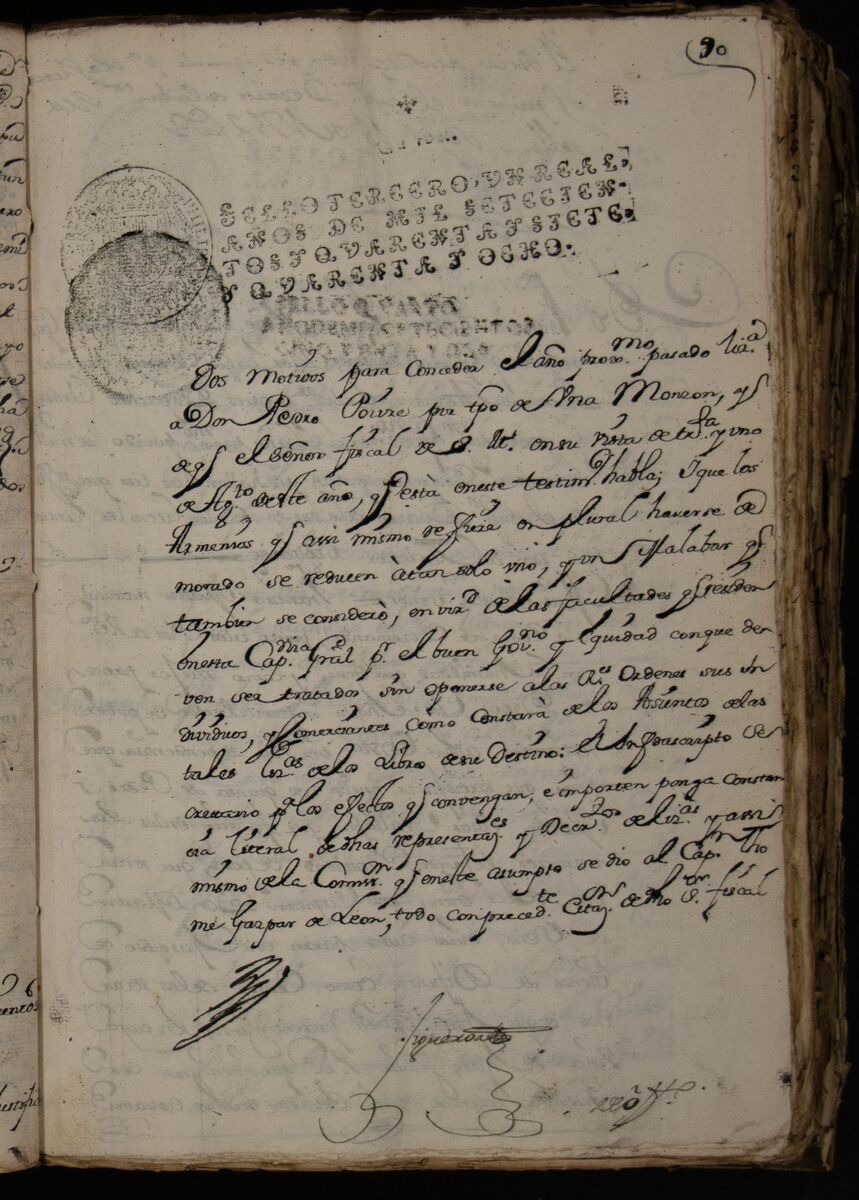 90
SELLO TERCERO, VN REAL,
AÑOS DE MIL SETECIEN-
TOS Y QVARENTA Y SIETE,
Y QVARENTA Y OCHO.
SELLO QVARTO
AÑO DE MIL SETECIENTOS
Dos Motivos para Conceder el año prox.mo pasado liz.a
a Don Pedro Poure por tpō de Vna Monzon, qe
de qe el Señor fiscal de S. M. en su vista de tr.ta y uno
de Ag.to deste año, qe està en este testim.o habla; y que los
Armenios qe assi mismo refiere en plural haverse de
morado se reducen à tan solo uno, y un Malabar qe
tambien se considerò, en vir.d de las facultades qe residen
en esta Cap.nia Gral pr. el buen Gov.no y equidad con que de
ven ser tratados sin oponerse a las R.es Ordenes sus in
dividuos, y Comerciantes como Constarà de los Asuntos de las
tales liz.as de los Libros de su Destino: el Infrascripto Se
cretario pa los efectos qe convengan, è importen ponga Constan
cia literal de dhas representaz.es y Decr.tos de liz.as y assi
mismo de la Comiss.n qe en este asumpto se dio al Cap.n Tho
me Gaspar de Leon, todo con preced.te Citaz.on de dho S.or fiscal
Figueroa